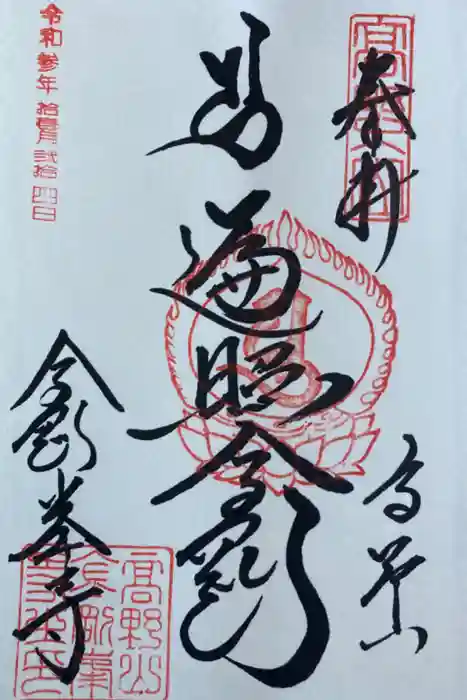 奉拝
高野山
遍照金剛
令和参年 拾壹月 弐拾四日
金剛峯寺
高野山
金剛峯